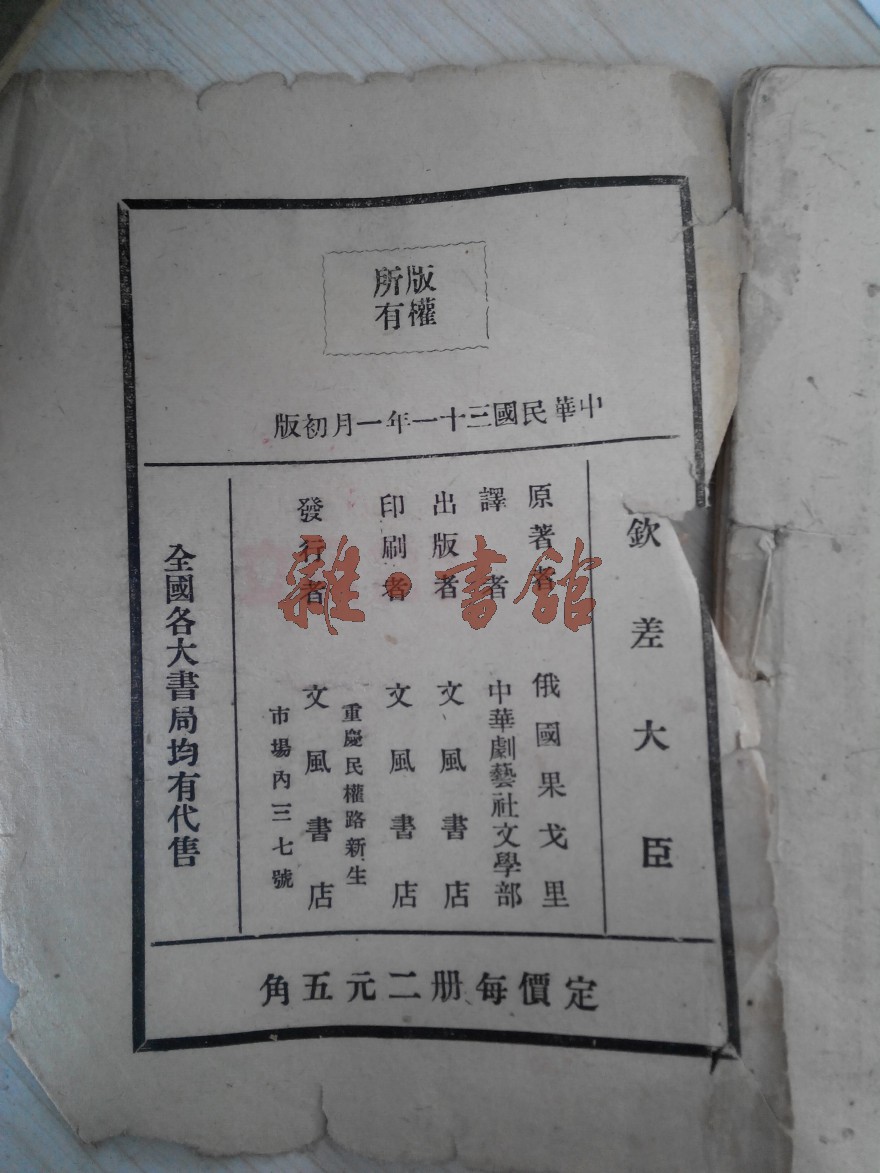 版權
所有
中華民國三十一年一月初版
欽差大臣
原著者 俄國果戈里
譯者 中華劇藝社文學部
出版者 文風書店
印刷者 文風書店
發行者 文風書店
重慶民權路新生
市場內三七號
全國各大書局均有代售
定價每册二元五角
雜·書館